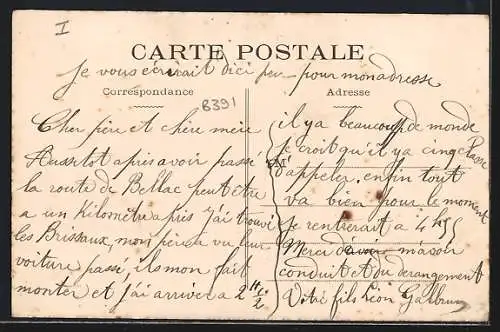 I
CARTE POSTALE
Je vous écrirait dici peu pour mon adresse
Correspondance
Adresse
B391
Cher père et chère mère
Aussitot apis avoir passé
la route de Bellac peut être
a un Kilomètre apis J'ai trouvé
les Brissaux, mon père a vu leur
voiture passé, ils mon fait
monter et j'ai arriver a 2 H 1/2
il y a beaucoup de monde
Je croit qu'il y a cinq classe
d'appeler. enfin tout
va bien pour le moment
Je rentrerait a 4 hs
Merci m'avoir
conduit et du derangement
Votre fils Léon